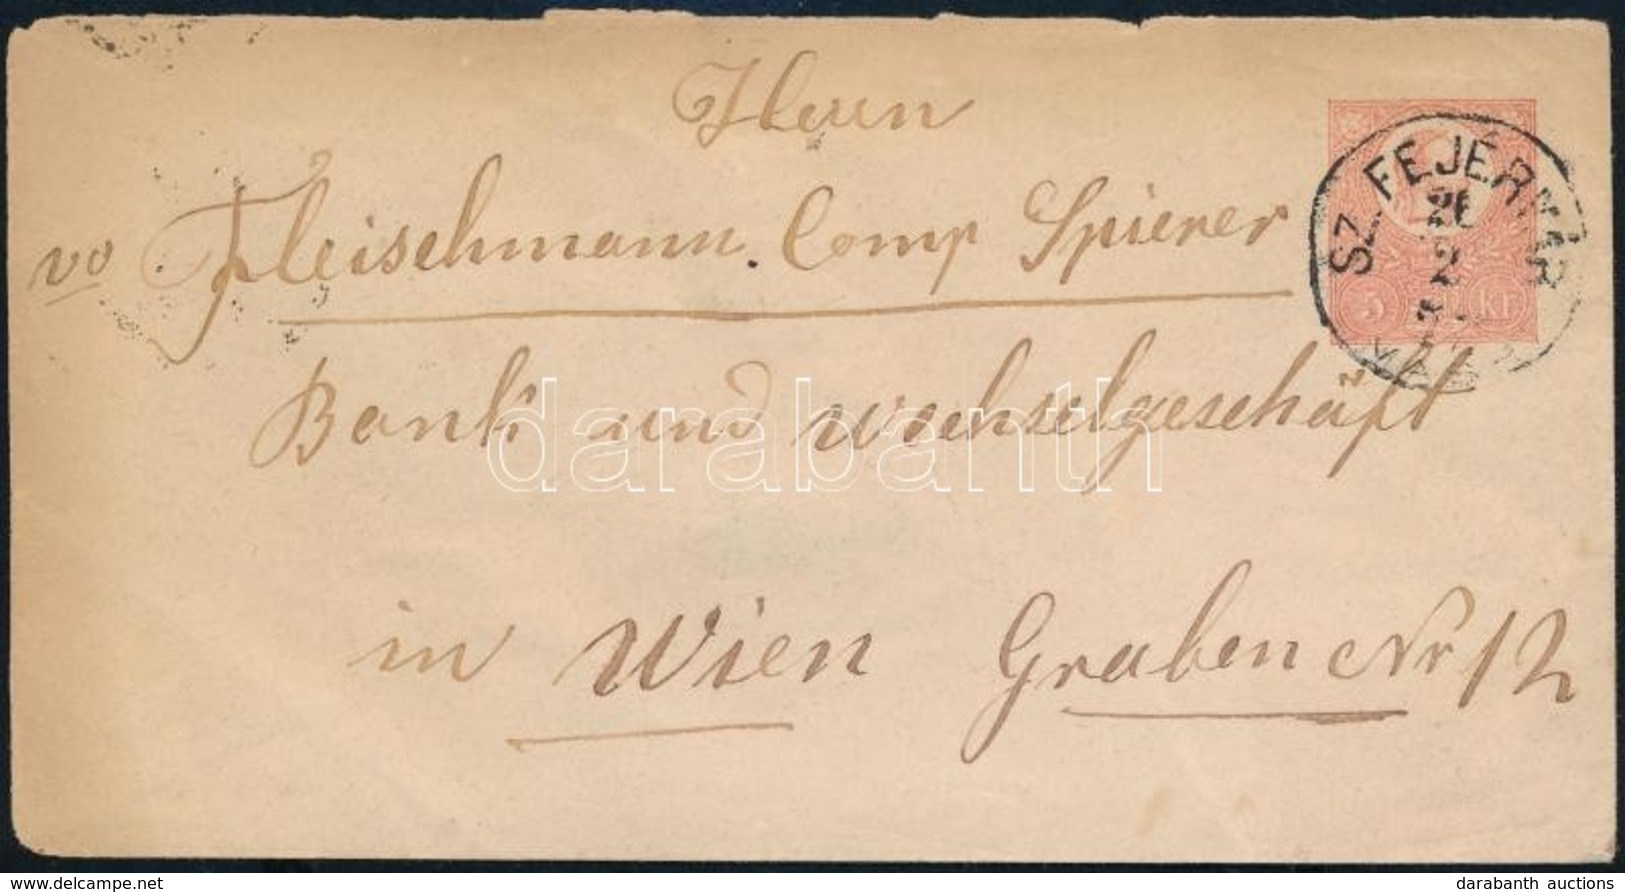 Herrn
Fleischmann. Comp Spierer
Bank und Wechselgeschäft
in Wien Graben Nr 12
SZ. FEJÉRVÁR
2
5 kr
darabanth
delcampe.net
darabanth auctions